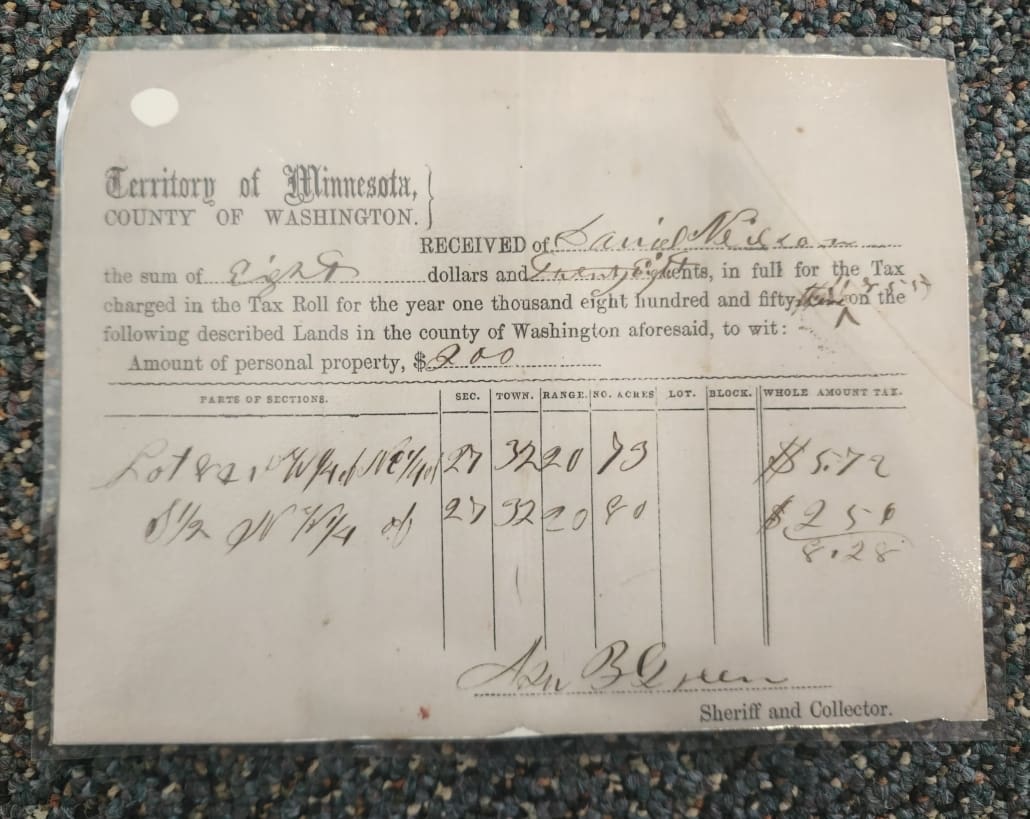 Territory of Minnesota, }
COUNTY OF WASHINGTON.
RECEIVED of David Neilson
the sum of Eight dollars and Twenty Eight cents, in full for the Tax
charged in the Tax Roll for the year one thousand eight hundred and fifty on the
following described Lands in the county of Washington aforesaid, to wit:
Amount of personal property, $ 200
PARTS OF SECTIONS. SEC. TOWN. RANGE. NO. ACRES LOT. BLOCK. WHOLE AMOUNT TAX.
Lot W1/4 of NE 1/4 of 27 32 20 73 $5.72
S 1/2 N W 1/4 of 27 32 20 80 $ 2 50
8.28
B Green
Sheriff and Collector.